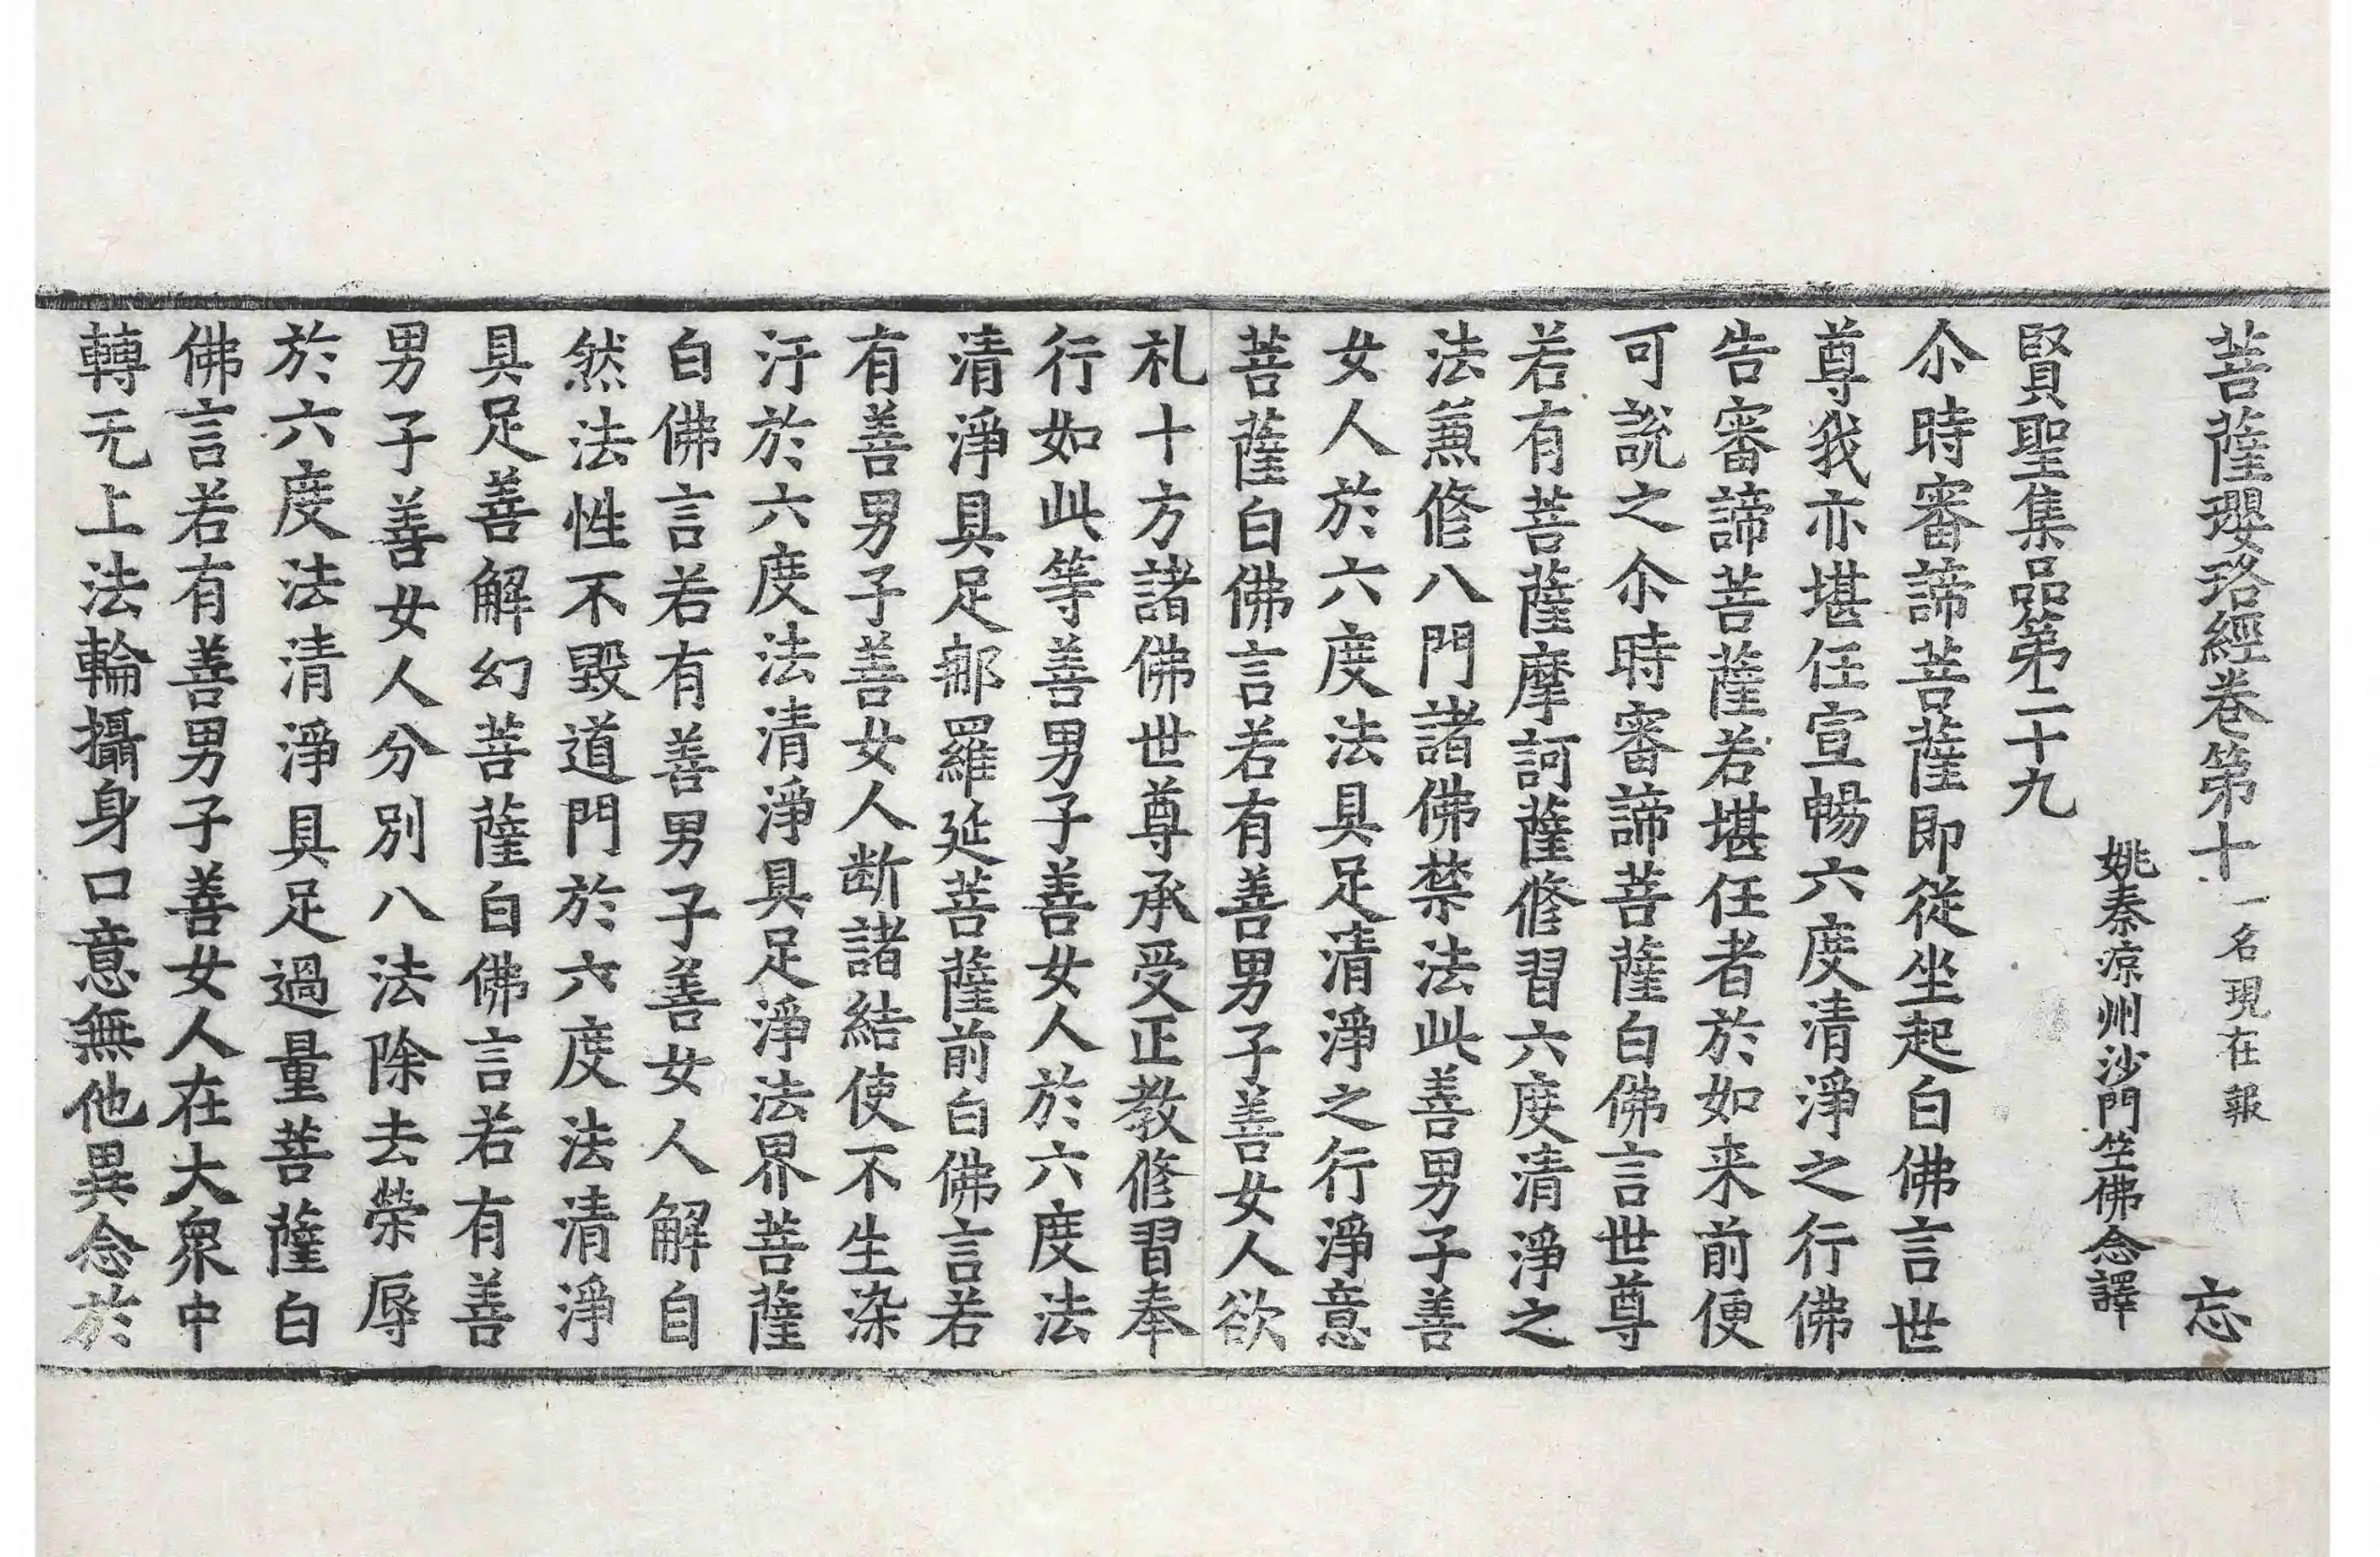 菩薩瓔珞經卷第十一名現在報 忘
姚秦涼州沙門竺佛念譯
賢聖集品第二十九
尒時審諦菩薩即從坐起白佛言世
尊我亦堪任宣暢六度清淨之行佛
告審諦菩薩若堪任者於如来前便
可說之尒時審諦菩薩白佛言世尊
若有菩薩摩訶薩修習六度清淨之
法兼修八門諸佛禁法此善男子善
女人於六度法具足清淨之行淨意
菩薩白佛言若有善男子善女人欲
礼十方諸佛世尊承受正教修習奉
行如此等善男子善女人於六度法
清淨具足郍羅延菩薩前白佛言若
有善男子善女人断諸結使不生染
汙於六度法清淨具足淨法界菩薩
白佛言若有善男子善女人解自
然法性不毀道門於六度法清淨
具足善解幻菩薩白佛言若有善
男子善女人分別八法除去榮辱
於六度法清淨具足過量菩薩白
佛言若有善男子善女人在大衆中
轉无上法輪攝身口意無他異念於